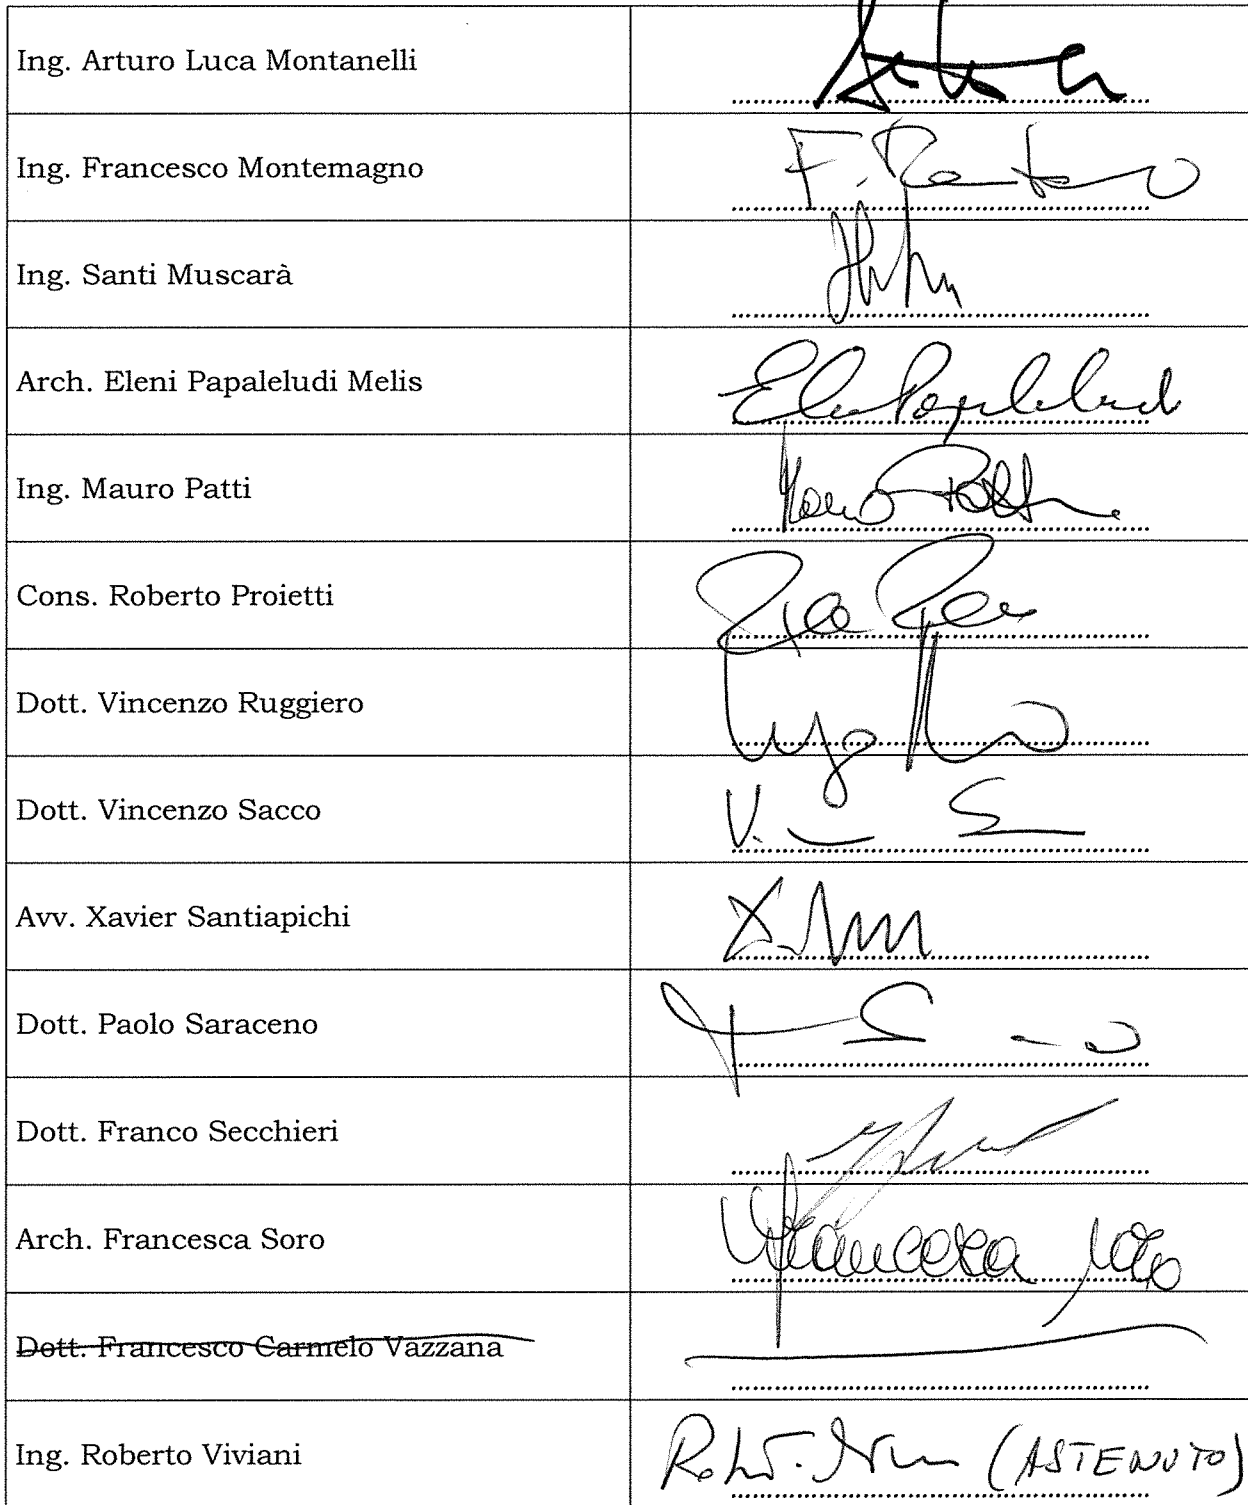 Ing. Arturo Luca Montanelli
Ing. Francesco Montemagno
Ing. Santi Muscarà
Arch. Eleni Papaleludi Melis
Ing. Mauro Patti
Cons. Roberto Proietti
Dott. Vincenzo Ruggiero
Dott. Vincenzo Sacco
Avv. Xavier Santiapichi
Dott. Paolo Saraceno
Dott. Franco Secchieri
Arch. Francesca Soro Francesca Soro
Dott. Francesco Carmelo Vazzana
Ing. Roberto Viviani (ASTENUTO)